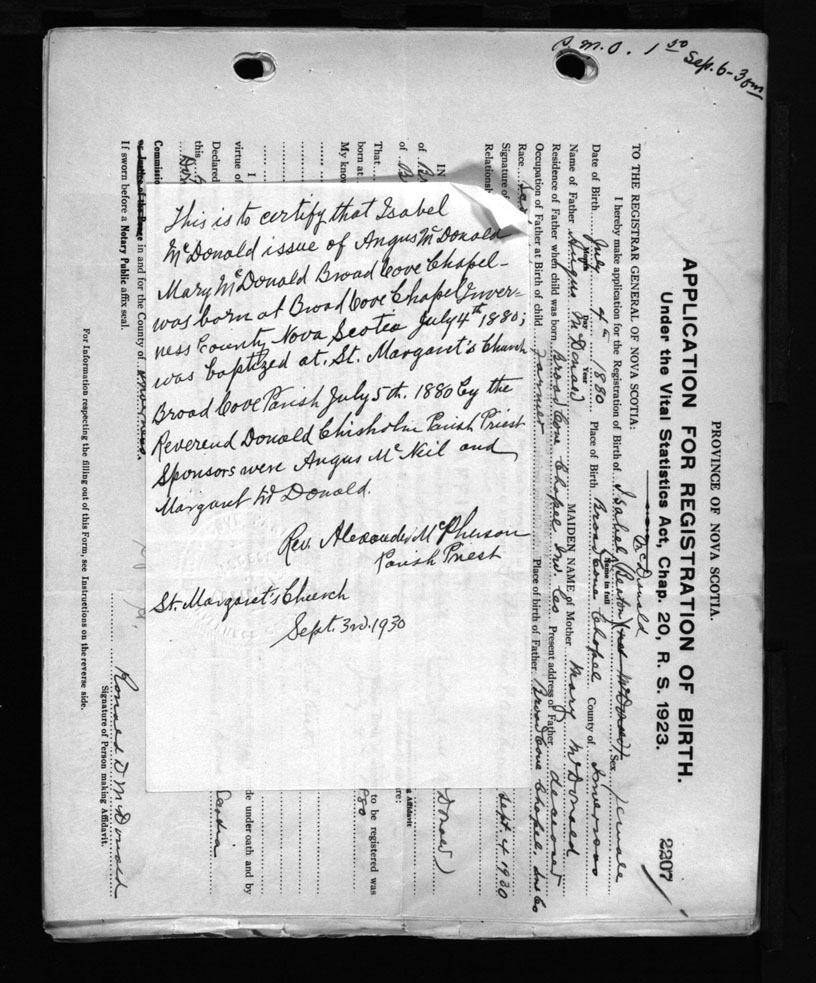 P.M.O. 1 50
Sep. 6 - 30
PROVINCE OF NOVA SCOTIA.
APPLICATION FOR REGISTRATION OF BIRTH.
Under the Vital Statistics Act, Chap. 20, R. S. 1923.
2207
TO THE REGISTRAR GENERAL OF NOVA SCOTIA:
McDonald
I hereby make application for the Registration of Birth of Isabel (née McDonald) Sex female
Name in full
Date of Birth July 4th 1880 Place of Birth Broad Cove Chapel County of Inverness
Month Day Year
Name of Father Angus McDonald MAIDEN NAME of Mother Mary McDonald
Residence of Father when child was born Broad Cove Chapel Inv. Co Present address of Father deceased
Occupation of Father at Birth of child Farmer Place of birth of Father Broad Cove Chapel, Inv Co
Race
Signature of Sept. 4 1930
Relations
Affidavit
IN re:
of
of Donald)
That to be registered was
born at 1880
My know
I de under oath and by
virtue of
Declared
this
Commissi
or Justice of the Peace in and for the County of Inverness
If sworn before a Notary Public affix seal.
Ronald D McDonald
Signature of Person making Affidavit.
For Information respecting the filling out of this Form, see Instructions on the reverse side.
This is to certify that Isabel
McDonald issue of Angus McDonald
Mary McDonald Broad Cove Chapel -
was born at Broad Cove Chapel Inver-
ness County, Nova Scotia July 4th 1880;
was baptized at St. Margaret's Church
Broad Cove Parish July 5th. 1880 by the
Reverend Donald Chisholm Parish Priest
Sponsors were Angus McNeil and
Margaret McDonald.
Rev. Alexander McPherson
Parish Priest
St. Margaret's Church
Sept. 3rd. 1930